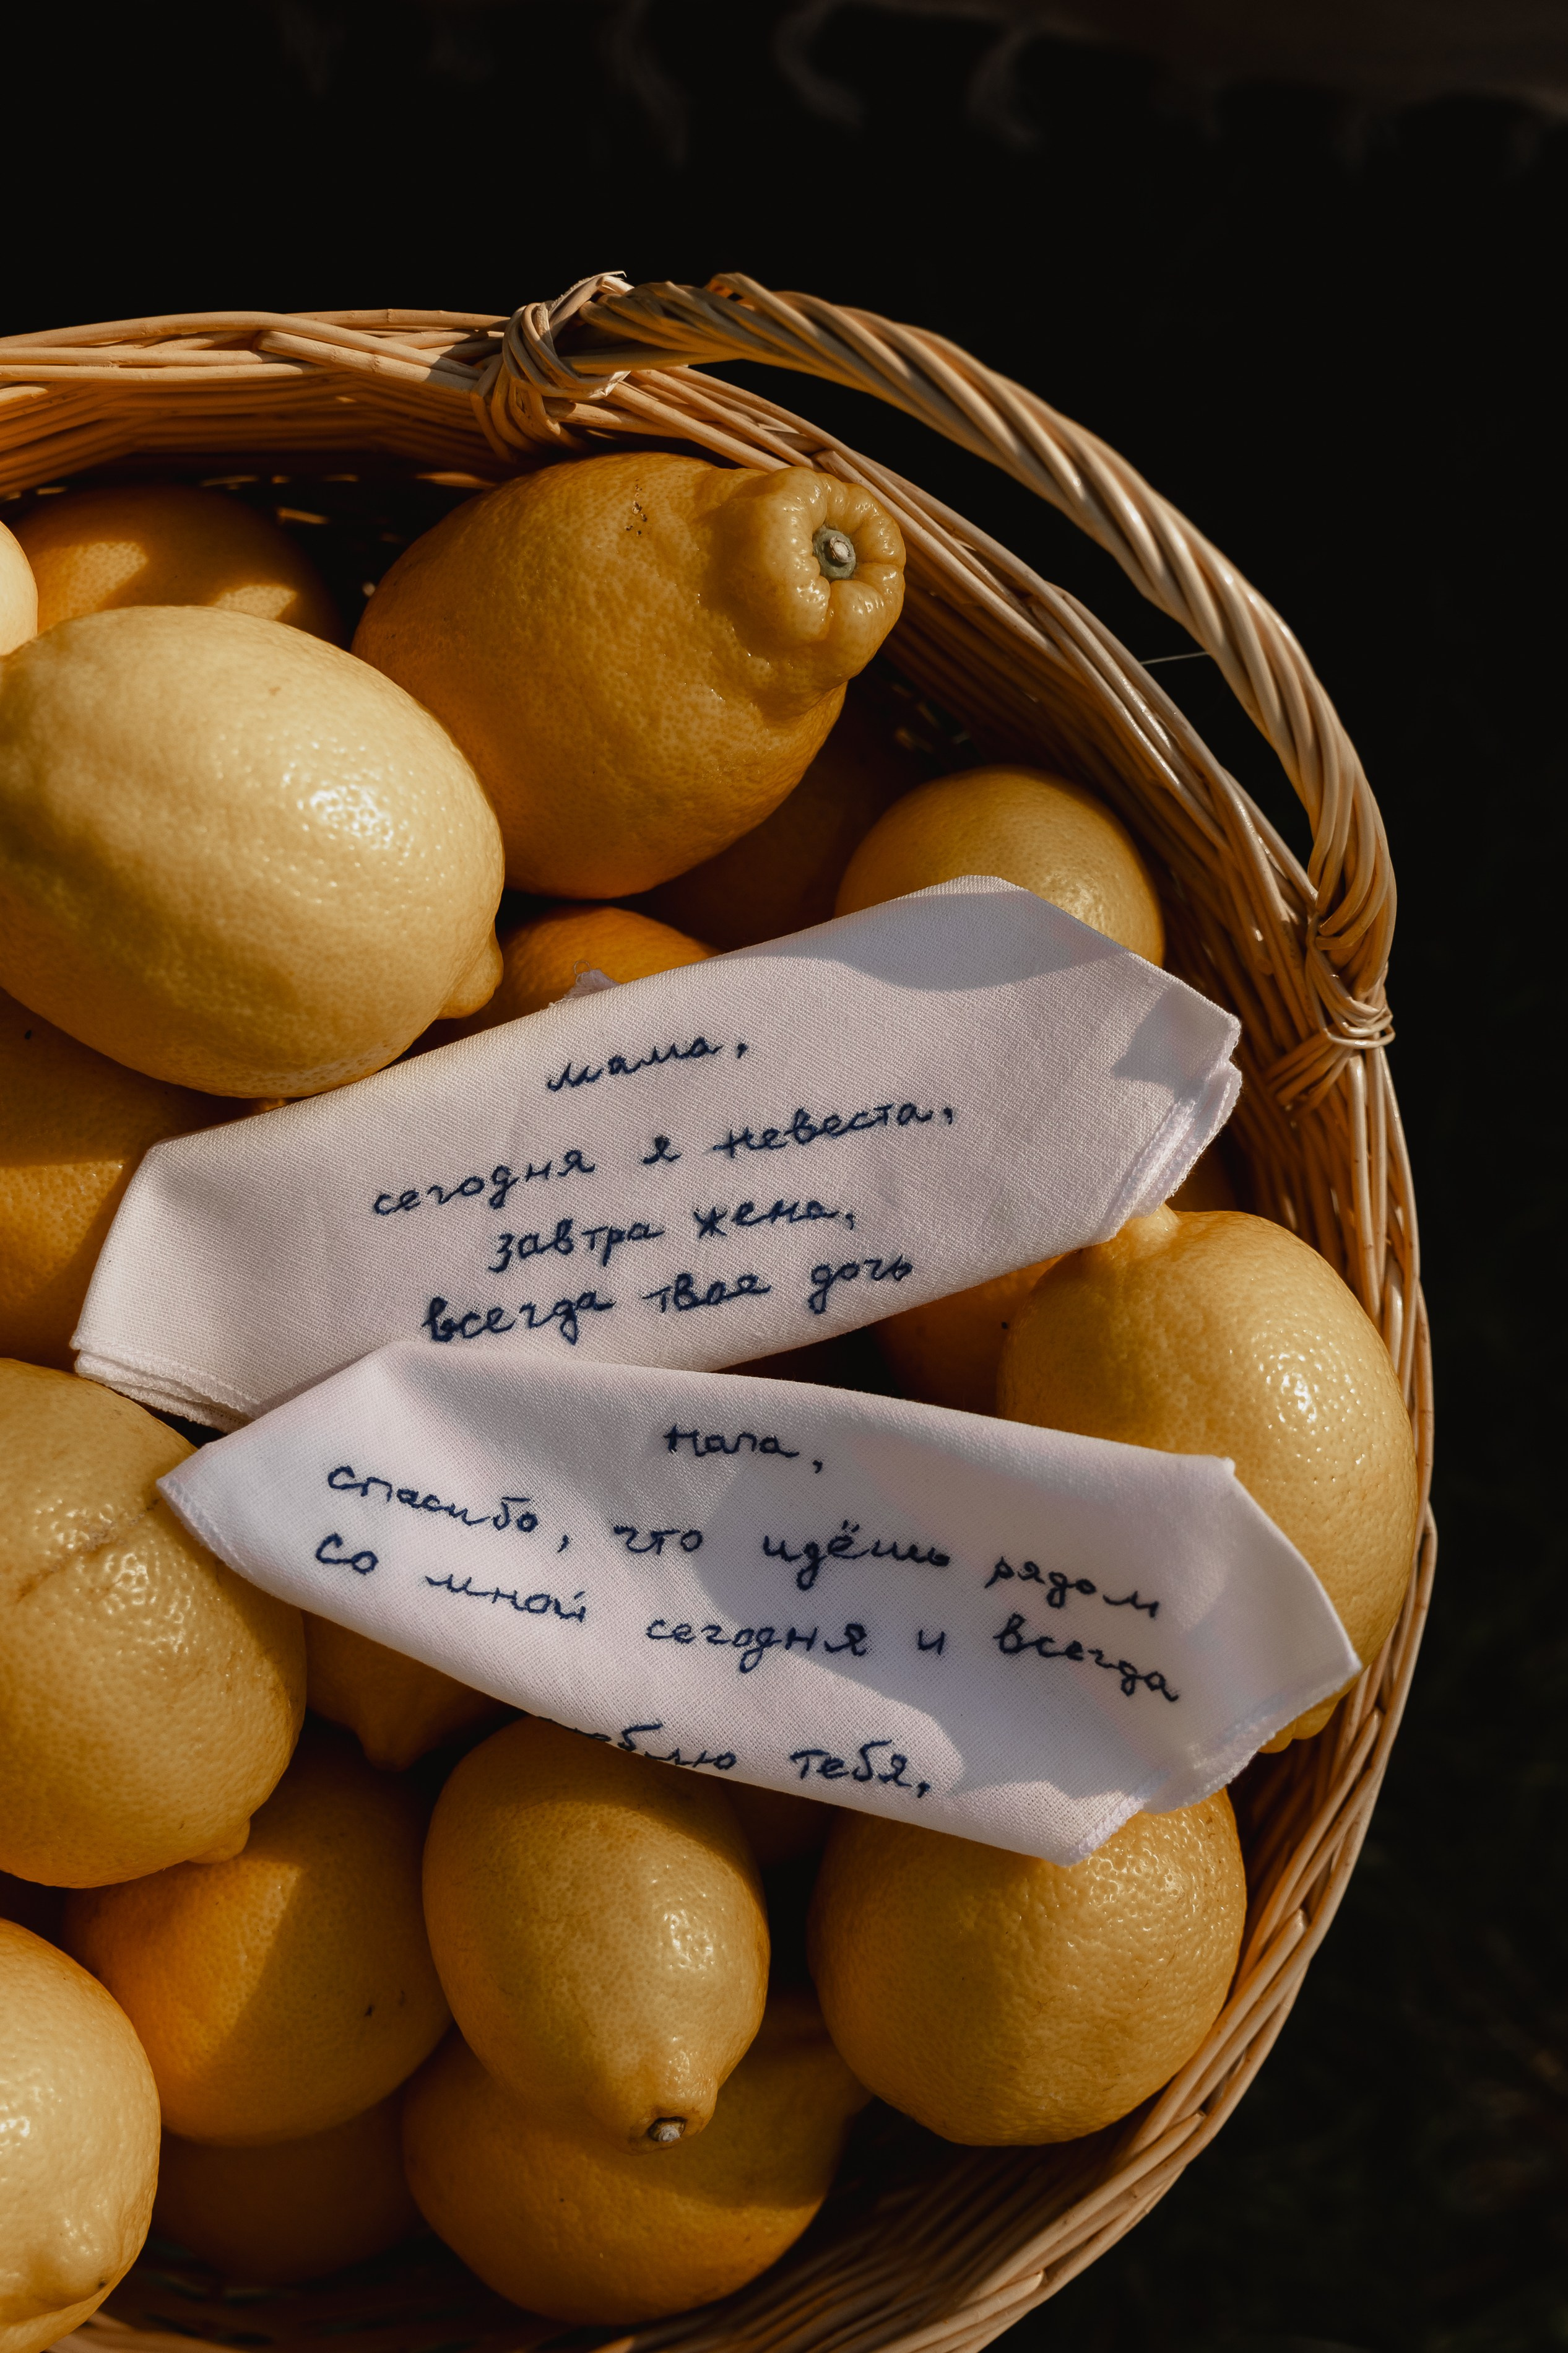 мама,
сегодня я невеста,
завтра жена,
всегда твоя дочь
папа,
спасибо, что идёшь рядом
со мной сегодня и всегда
тебя,